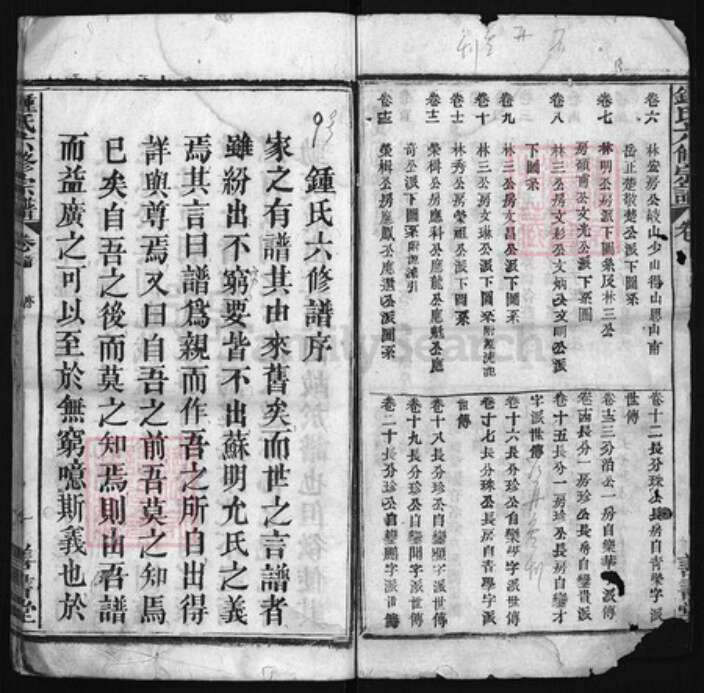 鍾氏六修宗譜
卷六 林宏房公岐山少山得山恩山南
岳正楚敬楚公派下圖系
卷七 林明公房派下圖系反林三公
房領甫公文光公派下系圖
卷八 林三公房文杉公文炳公文明公派
下圖系
卷九 林三公房文昌公派下圖系
卷十 林三公房文琳公派下圖系
卷十一 林秀公房榮祖公派下圖系
榮楫公房應科公應龍公應魁公應
奇公派下圖系
榮楫公房應鳳公應選公派圖系
卷十二長分珍公長房自榮字派
世傳
卷十三三分治公一房自欒華字派傳
長分一房珍公長房自鑾貴派
卷十五長分一房珍公長房自鑾才
字派世傳
卷十六長分珍公自欒學字派世傳
卷十七長分珠公長房自青學字派
世傳
卷十八長分珍公自鑾顯字派世傳
卷十九長分珍公自鑾開字派世傳
卷二十長分珍公自鑾鵬字派世傳
鍾氏六修譜序
家之有譜其由來舊矣而世之言譜者
雖紛出不窮要皆不出蘇明允氏之義
焉其言曰譜爲親而作吾之所自出得
詳與尊焉又曰自吾之前吾莫之知焉
已矣自吾之後而莫之知焉則由吾譜
而益廣之可以至於無窮噫斯義也於
鍾氏六修宗譜 卷首 序
FamilySearch